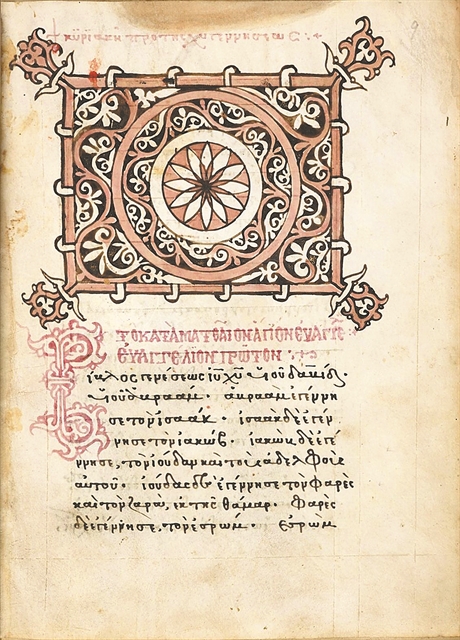 + κυριακη προ της χυ γεννησεως :+
το κατα ματθαιον αγιον ευαγγε
ευαγγελιον πρωτον
Βίβλος γενέσεως ἰυ χυ υἱοῦ δαυίδ·
υἱοῦ ἀβραάμ· ἀβραὰμ ἐγέννη
σε τὸν ἰσαάκ· ἰσαὰκ δὲ ἐγέν
νησε τὸν ἰακώβ· ἰακὼβ δὲ ἐγέ
ννησε, τὸν ἰούδαν καὶ τοὺς ἀδελφοὺς
αὐτοῦ· ἰούδας δὲ ἐγέννησε τὸν φαρὲς
καὶ τὸν ζαρὰ, ἐκ τῆς θάμαρ· φαρὲς
δὲ ἐγέννησε, τὸν ἐσρώμ· ἐσρὼμ